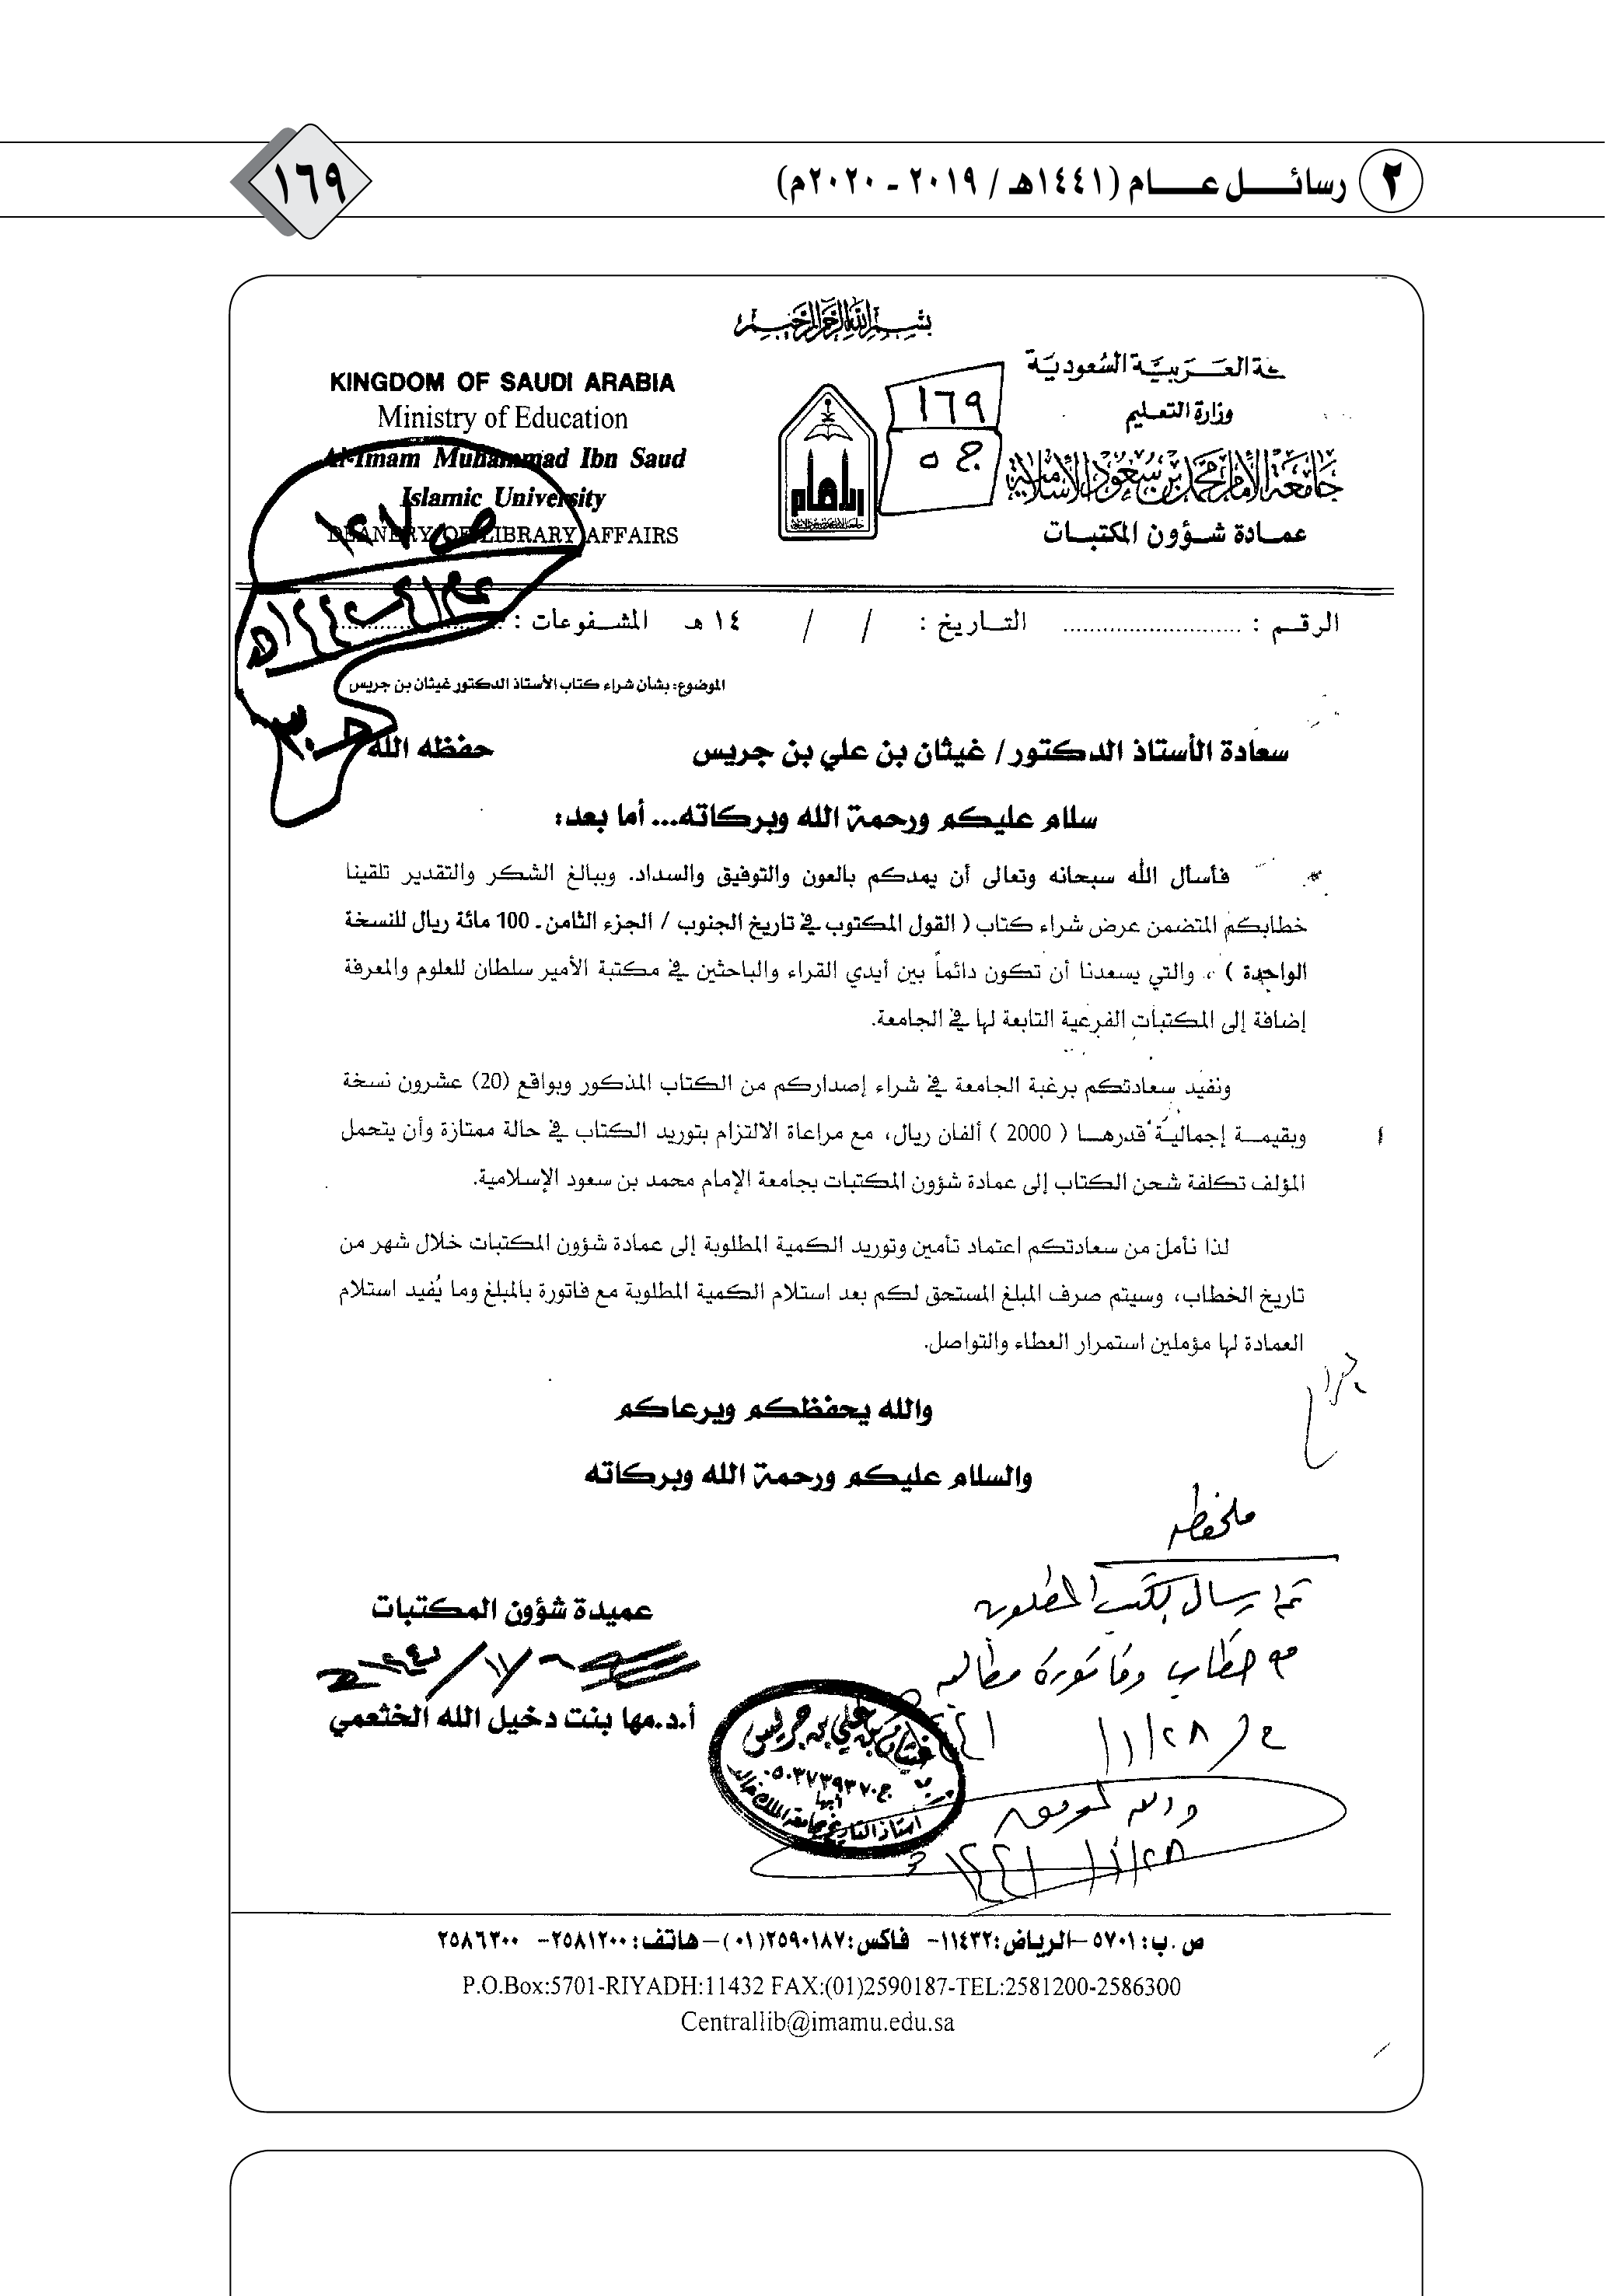 ٢ رسائل عام (١٤٤١هـ / ٢٠١٩ - ٢٠٢٠م)
١٦٩
بسم الله الرحمن الرحيم
ـة العربية السعودية
وزارة التعليم
جامعة الإمام محمد بن سعود الإسلامية
عمادة شؤون المكتبات
١٦٩
ج ٥
KINGDOM OF SAUDI ARABIA
Ministry of Education
Al-Imam Muhammad Ibn Saud
Islamic University
DEANERY OF LIBRARY AFFAIRS
الرقم : .......................... التاريخ : / / ١٤ هـ المشفوعات : ..........................
الموضوع: بشأن شراء كتاب الأستاذ الدكتور غيثان بن جريس
سعادة الأستاذ الدكتور/ غيثان بن علي بن جريس حفظه الله
سلام عليكم ورحمة الله وبركاته... أما بعد:
فأسأل الله سبحانه وتعالى أن يمدكم بالعون والتوفيق والسداد. وببالغ الشكر والتقدير تلقينا
خطابكم المتضمن عرض شراء كتاب ( القول المكتوب في تاريخ الجنوب / الجزء الثامن. 100 مائة ريال للنسخة
الواحدة ) ، والتي يسعدنا أن تكون دائماً بين أيدي القراء والباحثين في مكتبة الأمير سلطان للعلوم والمعرفة
إضافة إلى المكتبات الفرعية التابعة لها في الجامعة.
ونفيد سعادتكم برغبة الجامعة في شراء إصداركم من الكتاب المذكور وبواقع (20) عشرون نسخة
وبقيمة إجمالية قدرها ( 2000 ) ألفان ريال، مع مراعاة الالتزام بتوريد الكتاب في حالة ممتازة وأن يتحمل
المؤلف تكلفة شحن الكتاب إلى عمادة شؤون المكتبات بجامعة الإمام محمد بن سعود الإسلامية.
لذا نأمل من سعادتكم اعتماد تأمين وتوريد الكمية المطلوبة إلى عمادة شؤون المكتبات خلال شهر من
تاريخ الخطاب، وسيتم صرف المبلغ المستحق لكم بعد استلام الكمية المطلوبة مع فاتورة بالمبلغ وما يُفيد استلام
العمادة لها مؤملين استمرار العطاء والتواصل.
والله يحفظكم ويرعاكم
والسلام عليكم ورحمة الله وبركاته
ملحوظه
تم ارسال الكتب المطلوبه
مع خطاب وفاتورة مطالبه
في ٢٨/١/١٤٤١
والله الموفق
٢٨/١/١٤٤١
عميدة شؤون المكتبات
أ.د.مها بنت دخيل الله الخثعمي
غيثان بن علي بن جريس
ج ٠٥٠٣٧٣٩٣٧٠
أبها
أستاذ التاريخ بجامعة الملك خالد
ص.ب: ٥٧٠١ –الرياض:١١٤٣٢– فاكس:٢٥٩٠١٨٧(٠١)– هاتف:٢٥٨١٢٠٠– ٢٥٨٦٣٠٠
P.O.Box:5701-RIYADH:11432 FAX:(01)2590187-TEL:2581200-2586300
Centrallib@imamu.edu.sa